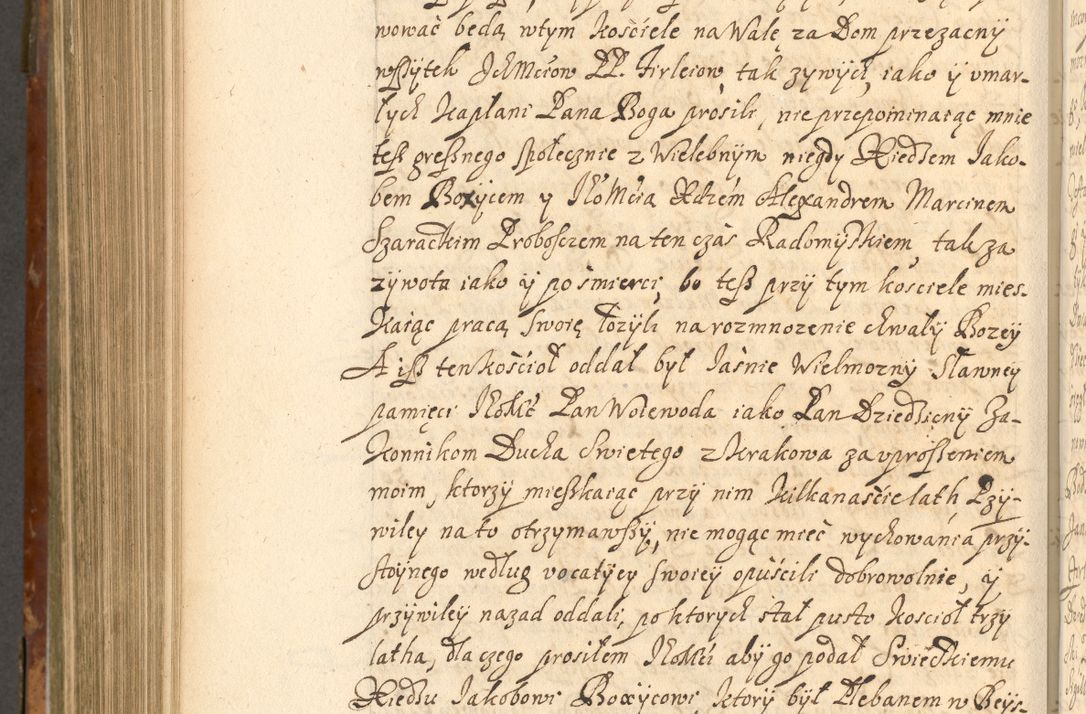 wować będą wtym kosćiele na Walę za Dom przezacny
wssytek JchMćiow PP. Firleiow tak zywych, iako y vmar-
łych kapłani Pana Boga prosili, nie przepominaiąc mnie
tess gressnego społecznie z Wielebnym niegdy Xiedzem Jako-
bem Boxycem y JeoMćią Xdzem Alexandrem Marcinem
Szaradkim Proboszczem na ten czas Radomyskiem, tak za
zywota iako y po smierci, bo tess przy tym kosciele mies-
kaiąc pracą swoię łozyli na rozmnozenie chwały Bozey
A iss ten kosćioł oddał był Jasnie Wielmozny Sławney
pamięci JeoMć Pan Woiewoda iako Pan Dziedzicny Za-
konnikom Ducha Swiętego z Krakowa za vprossęniem
moim, ktorzy mieszkaiąc przy nim kilkanaśćie lath, Przy-
wiley na to otrzymawszy, nie mogąc mieć wychowania przy-
stoynego według vocatiey swoiey opuśćili dobrowolnie, y
przywiley nazad oddali, po ktorych stał pusto kosćioł trzy
latha, dla czego prosiłem JeoMći aby go podał Swieckiemu
Xiedzu Jakobowi Boxycowi, ktory był Plebanem w Beys-